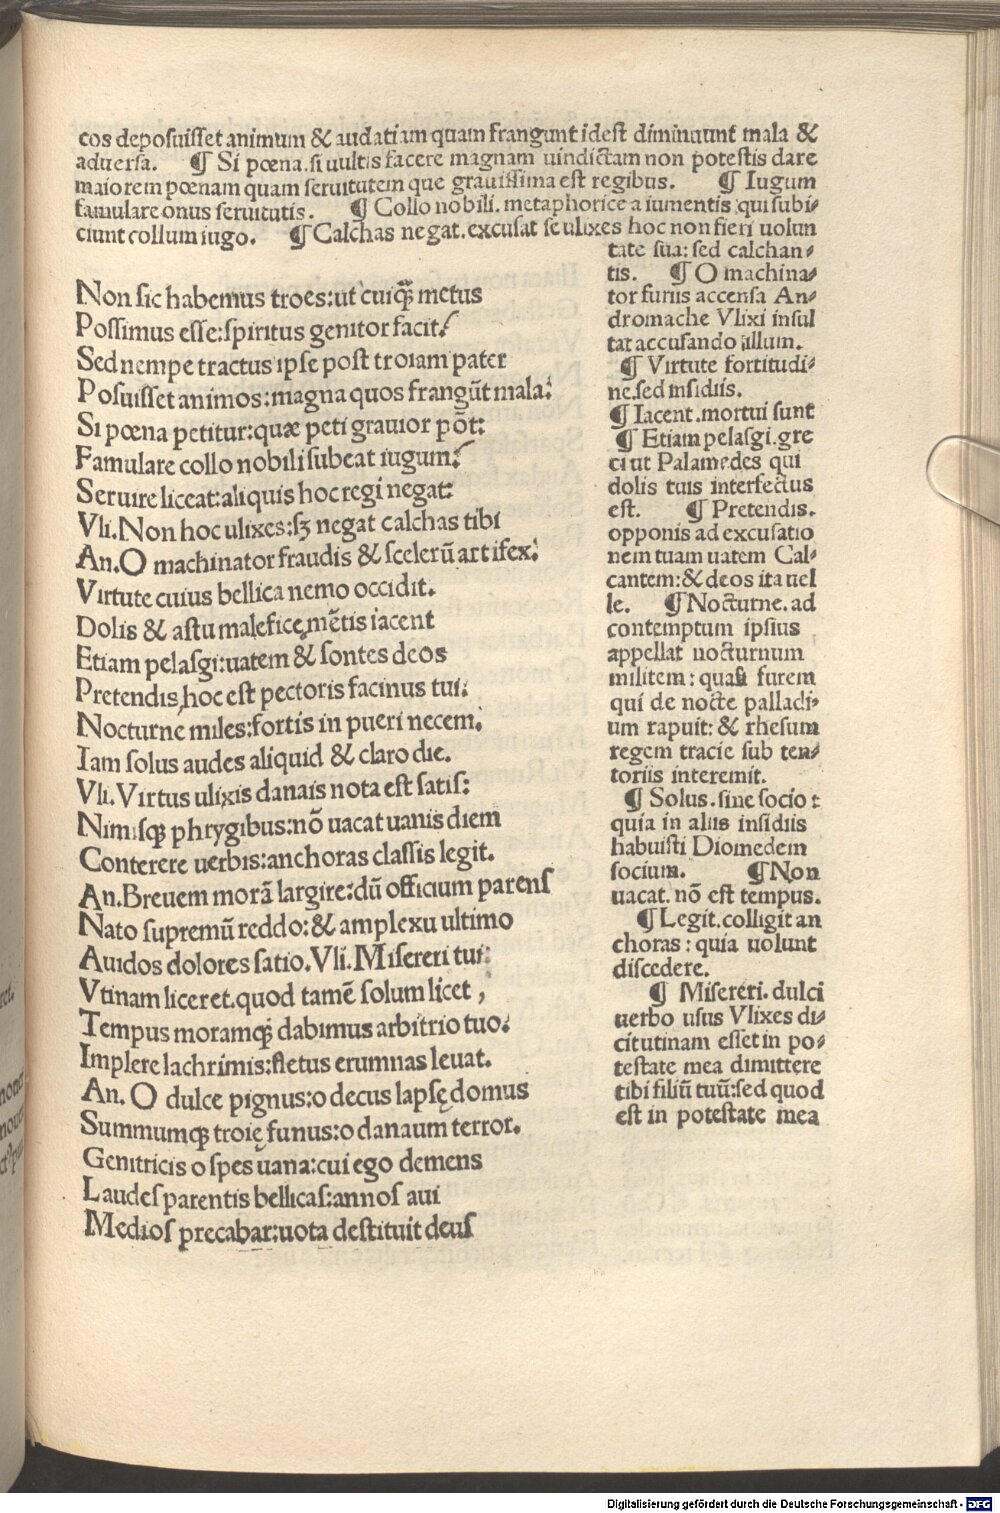 cos deposuisset animum & audatiam quam frangunt idest diminuunt mala &
aduersa. ¶ Si pœna.si uultis facere magnam uindictam non potestis dare
maiorem pœnam quam seruitutem que grauissima est regibus. ¶ Iugum
famulare onus seruitutis. ¶ Collo nobili. metaphorice a iumentis qui subi-
ciunt collum iugo. ¶ Calchas negat.excusat se ulixes hoc non fieri uolun
tate sua: sed calchan-
tis. ¶ O machina-
tor furiis accensa An-
dromache Vlixi insul
tat accusando illum.
¶ Virtute fortitudi-
ne.sed insidiis.
¶ Iacent.mortui sunt
¶ Etiam pelasgi.gre
ci ut Palamedes qui
dolis tuis interfectus
est. ¶ Pretendis.
opponis ad excusatio
nem tuam uatem Cal-
cantem:& deos ita uel
le. ¶ Nocturne. ad
contemptum ipsius
appellat nocturnum
militem: quasi furem
qui de nocte palladi-
um rapuit: & rhesum
regem tracie sub ten-
toriis interemit.
¶ Solus.sine socio :
quia in aliis insidiis
habuisti Diomedem
socium. ¶ Non
uacat. nõ est tempus.
¶ Legit.colligit an
choras: quia uolunt
discedere.
¶ Misereri. dulci
uerbo usus Vlixes di-
cit utinam esset in po-
testate mea dimittere
tibi filiũ tuũ:sed quod
est in potestate mea
Non sic habemus troes:ut cuiqꝫ metus
Possimus esse:spiritus genitor facit/
Sed nempe tractus ipse post troiam pater
Posuisset animos:magna quos frangũt mala:
Si pœna petitur:quæ peti grauior põt:
Famulare collo nobili subeat iugum/
Seruire liceat:aliquis hoc regi negat:
Vli.Non hoc ulixes:sꝫ negat calchas tibi
An.O machinator fraudis & scelerũ artifex:
Virtute cuius bellica nemo occidit.
Dolis & astu maleficę mẽtis iacent
Etiam pelasgi:uatem & sontes deos
Pretendis,hoc est pectoris facinus tui:
Nocturne miles:fortis in pueri necem.
Iam solus audes aliquid & claro die.
Vli.Virtus ulixis danais nota est satis:
Nimisqꝫ phrygibus:nõ uacat uanis diem
Conterere uerbis:anchoras classis legit.
An.Breuem morã largire:dũ officium parens
Nato supremũ reddo:& amplexu ultimo
Auidos dolores satio.Vli.Misereri tui:
Vtinam liceret.quod tamẽ solum licet ,
Tempus moramqꝫ dabimus arbitrio tuo:
Implere lachrimis:fletus erumnas leuat.
An. O dulce pignus:o decus lapsę domus
Summumqꝫ troię funus:o danaum terror.
Genitricis o spes uana:cui ego demens
Laudes parentis bellicas:annos aui
Medios precabar:uota destituit deus
Digitalisierung gefördert durch die Deutsche Forschungsgemeinschaft - DFG